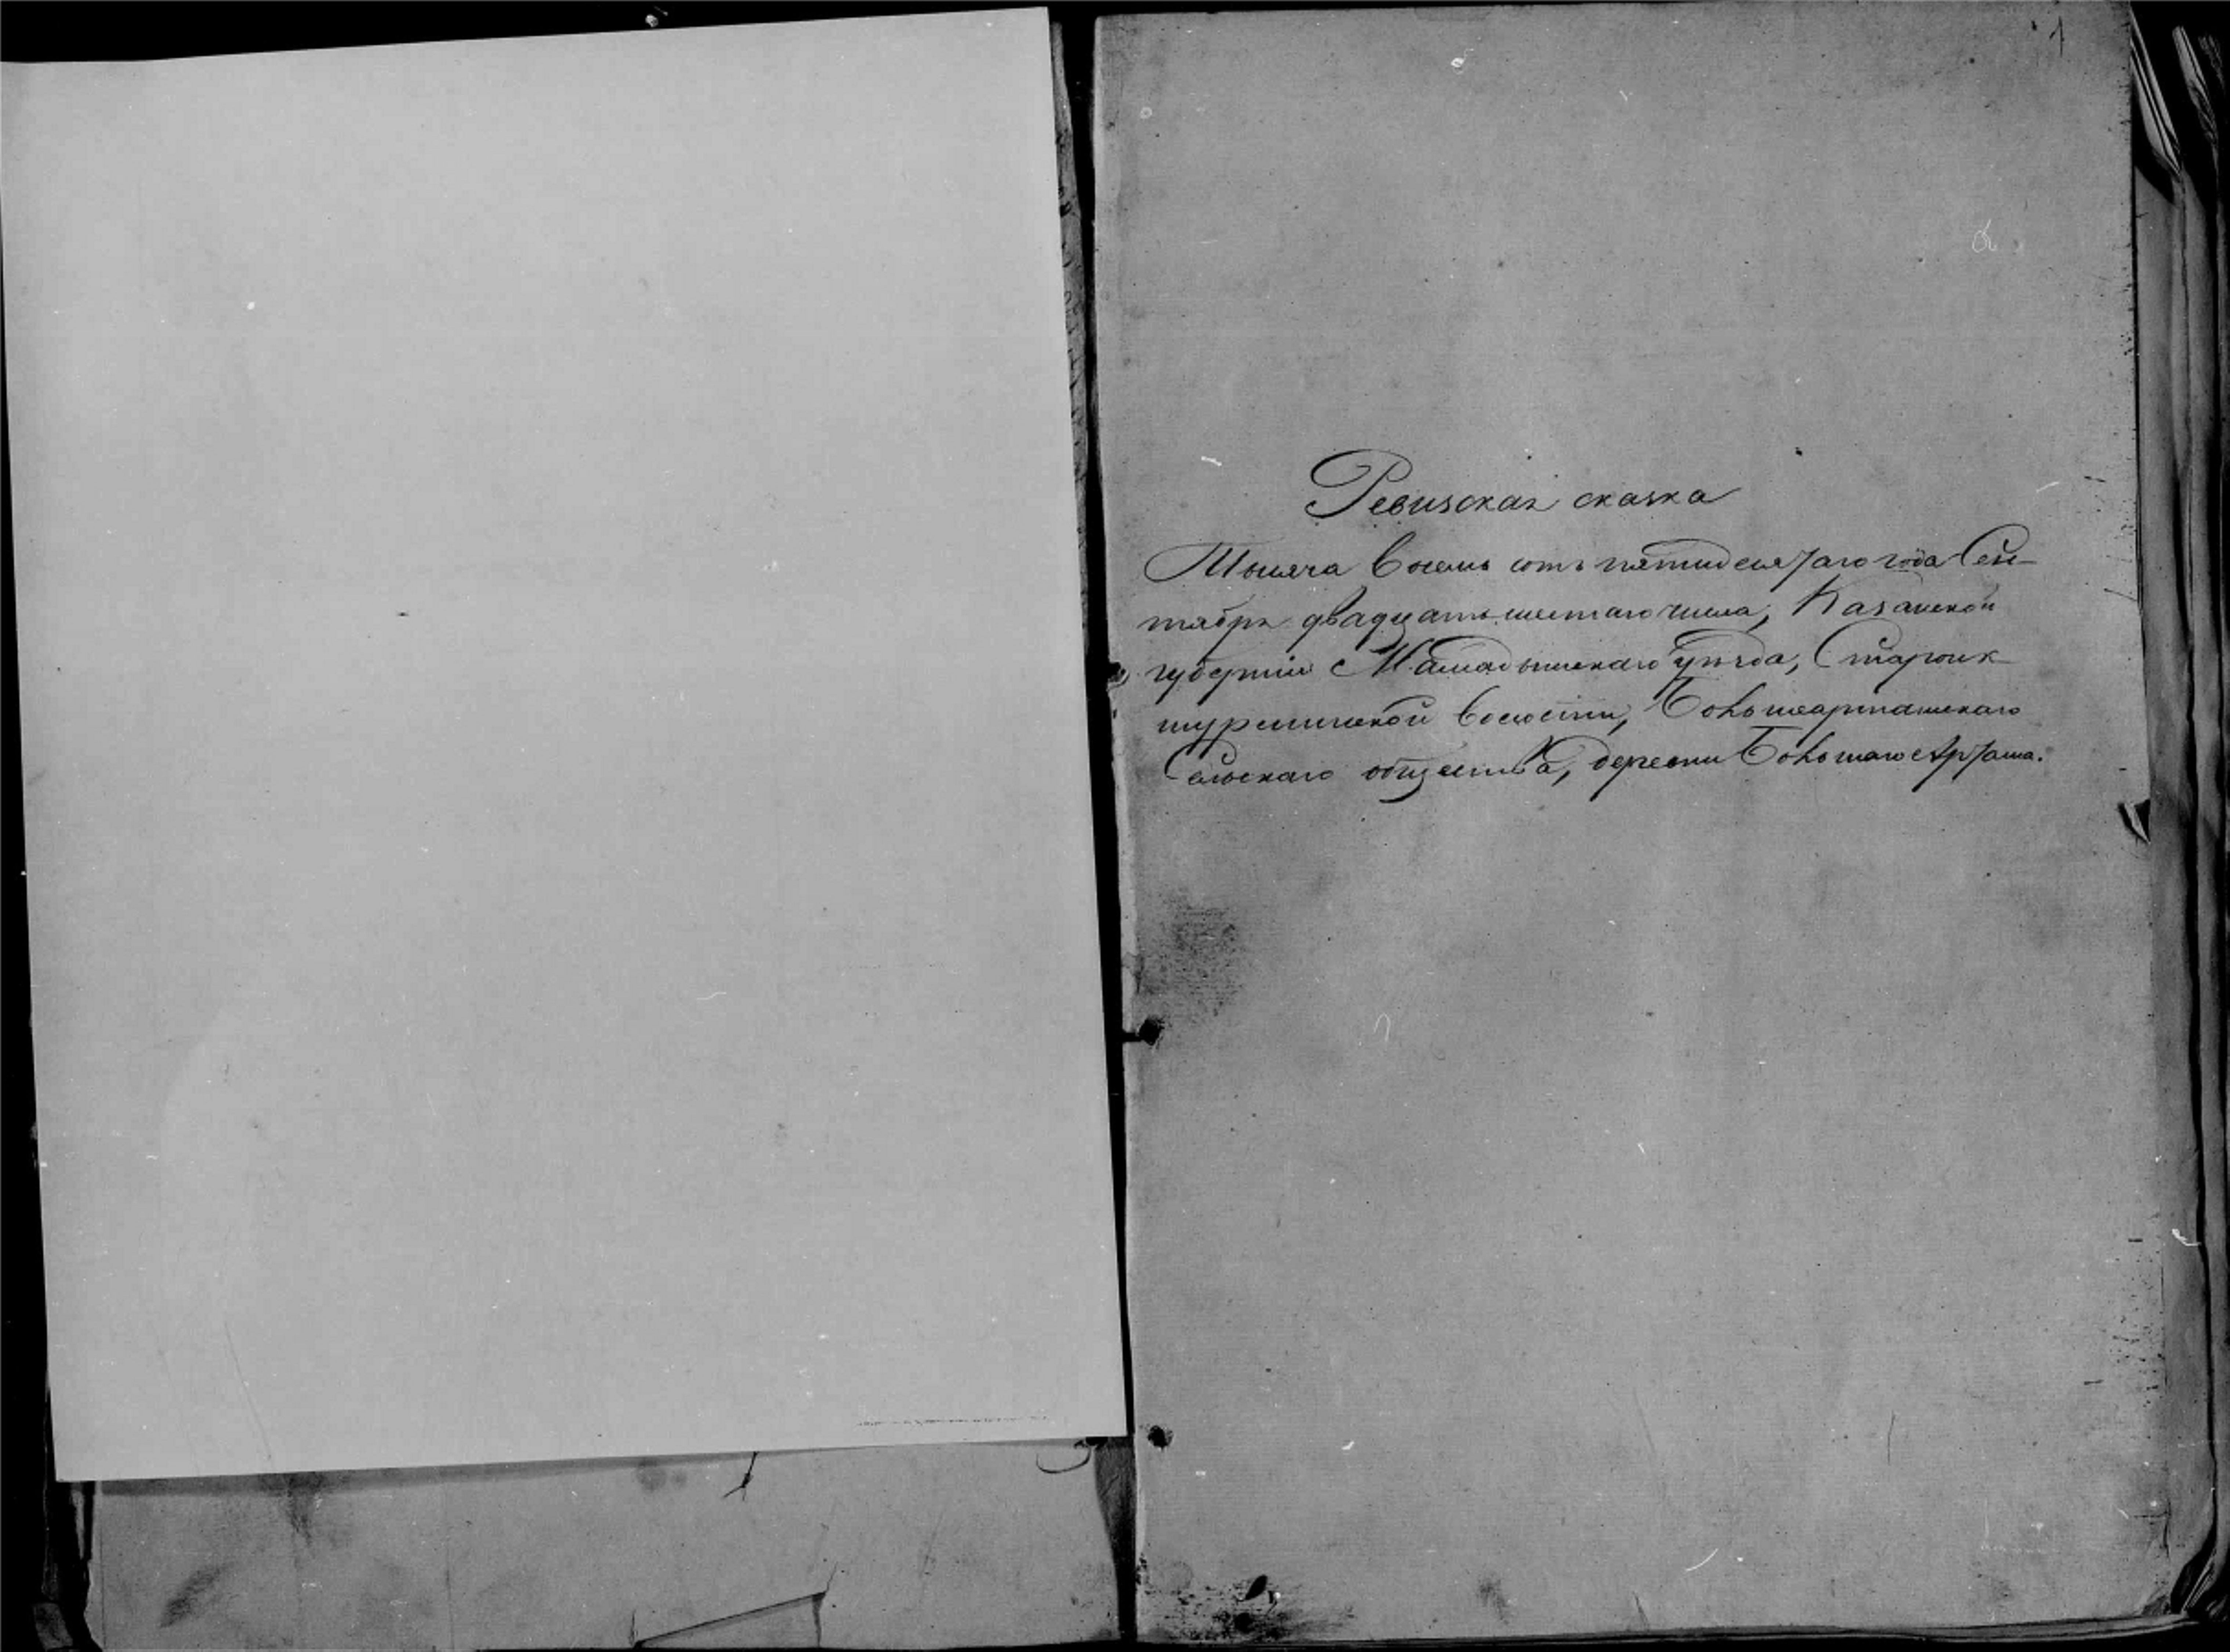 1
Ревизская сказка
Тысяча восемь сотъ пятидесятаго года Сен-
тября двадцать шестаго числа, Казанской
губерніи Мамадышскаго уѣзда, Староик-
шурминской волости, Большеарташскаго
Сельскаго общества, деревни Большаго Арташа.